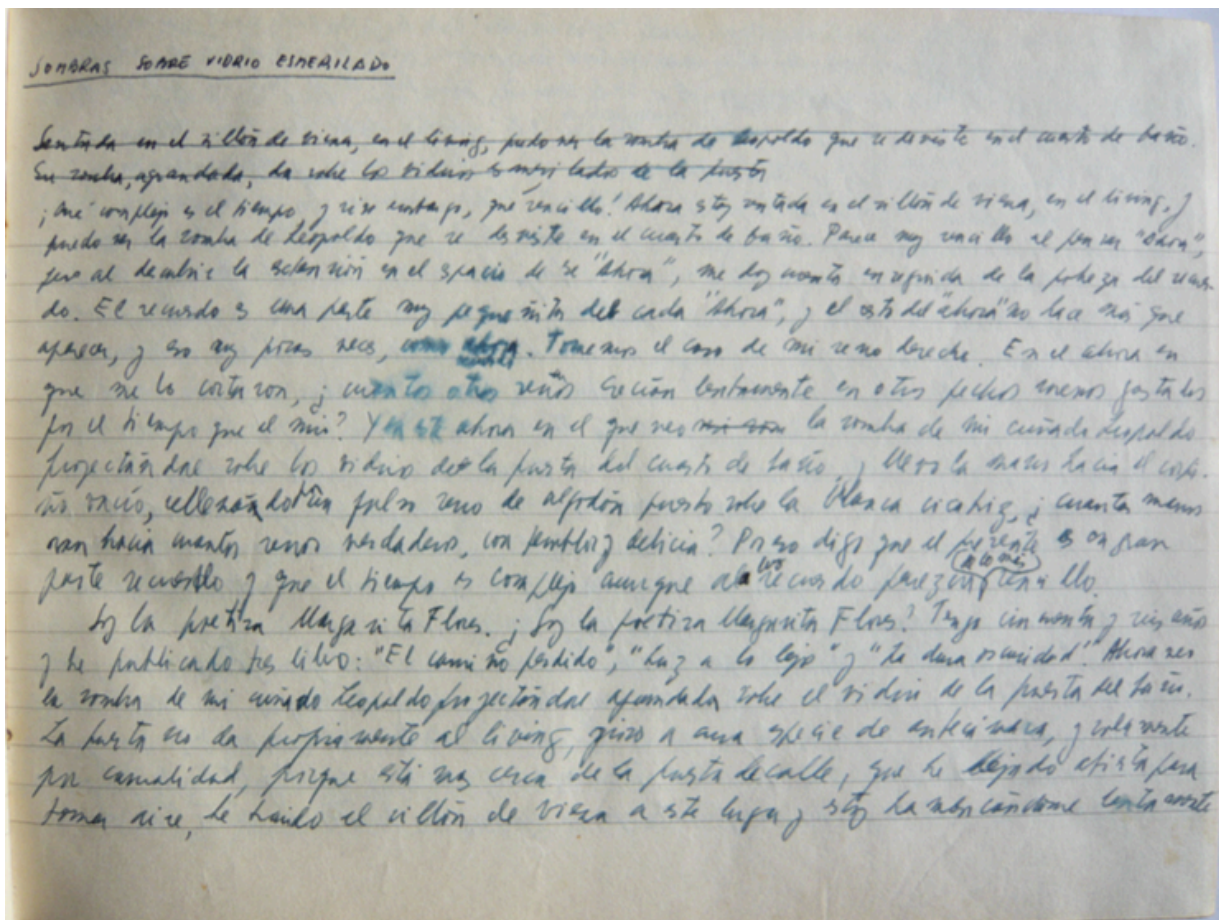 SOMBRAS SOBRE VIDRIO ESMERILADO
Sentada en el sillón de viena, en el living, puedo ver la sombra de Leopoldo que se desviste en el cuarto de baño.
Su sombra, agrandada, da sobre los vidrios esmerilados de la puerta
¡Qué complejo es el tiempo, y sin embargo, qué sencillo! Ahora estoy sentada en el sillón de viena, en el living, y
puedo ver la sombra de Leopoldo que se desviste en el cuarto de baño. Parece muy sencillo al pensar "ahora",
pero al descubrir la extensión en el espacio de ese "ahora", me doy cuenta enseguida de la pobreza del recuer-
do. El recuerdo es una parte muy pequeñita de cada "ahora", y el resto del "ahora" no hace más que
aparecer, y eso muy pocas veces, como ahora. Tomemos el caso de mi seno derecho. En el ahora en
que me lo cortaron, ¿cuántos otros senos crecían lentamente en otros pechos menos gastados
por el tiempo que el mío? Y en este ahora en el que veo la sombra de mi cuñado Leopoldo
proyectándose sobre los vidrios de la puerta del cuarto de baño y llevo la mano hacia el corpi-
ño vacío, rellenado con un falso seno de algodón puesto sobre la blanca cicatriz, ¿cuántas manos
van hacia cuántos senos verdaderos, con temblor y delicia? Por eso digo que el presente es en gran
parte recuerdo y que el tiempo es complejo aunque a la luz del recuerdo parezca sencillo.
Soy la poetisa Margarita Flores. ¿Soy la poetisa Margarita Flores? Tengo cincuenta y seis años
y he publicado tres libros: "El camino perdido", "Luz a lo lejos" y "La dura oscuridad". Ahora veo
la sombra de mi cuñado Leopoldo proyectándose agrandada sobre el vidrio de la puerta del baño.
La puerta no da propiamente al living, sino a una especie de antecámara, y solamente
por casualidad, porque está más cerca de la puerta de calle, que he dejado abierta para
tomar aire, he traído el sillón de viena a este lugar y estoy hamacándome lentamente